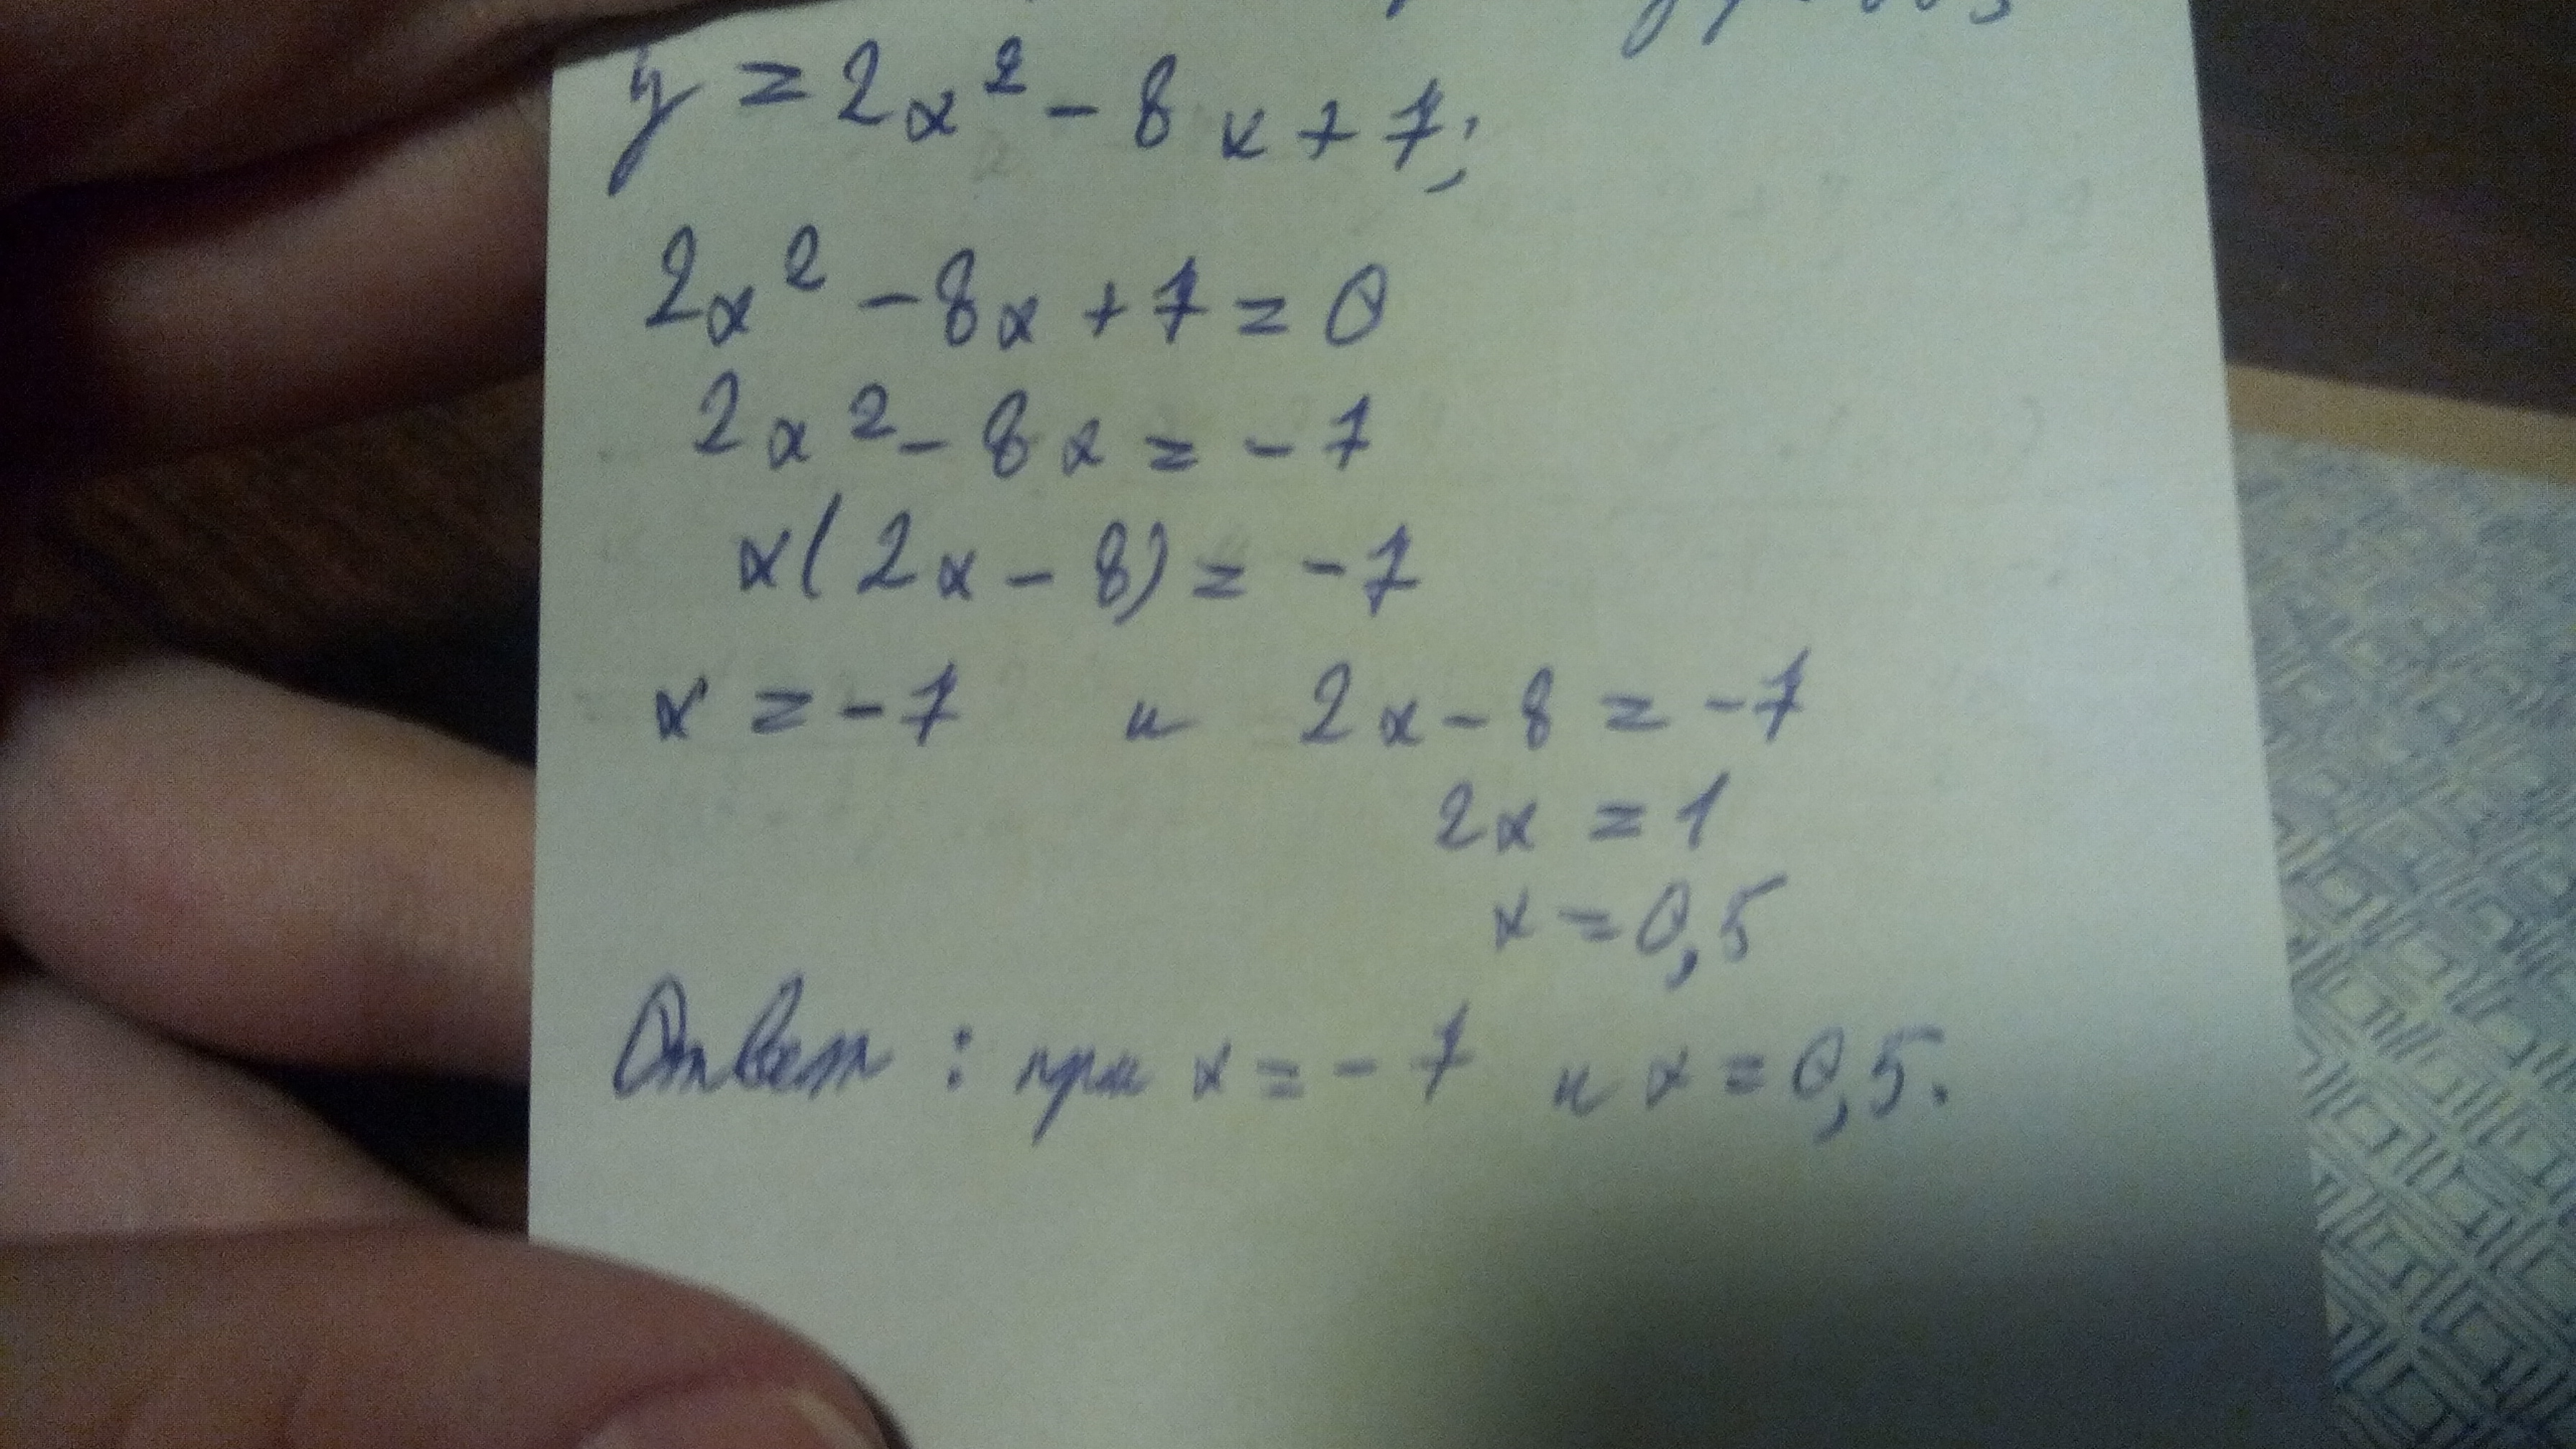 y = 2x² - 8x + 7;
2x² - 8x + 7 = 0
2x² - 8x = -7
x(2x - 8) = -7
x = -7 и 2x - 8 = -7
2x = 1
x = 0,5
Ответ: при x = -7 и x = 0,5.